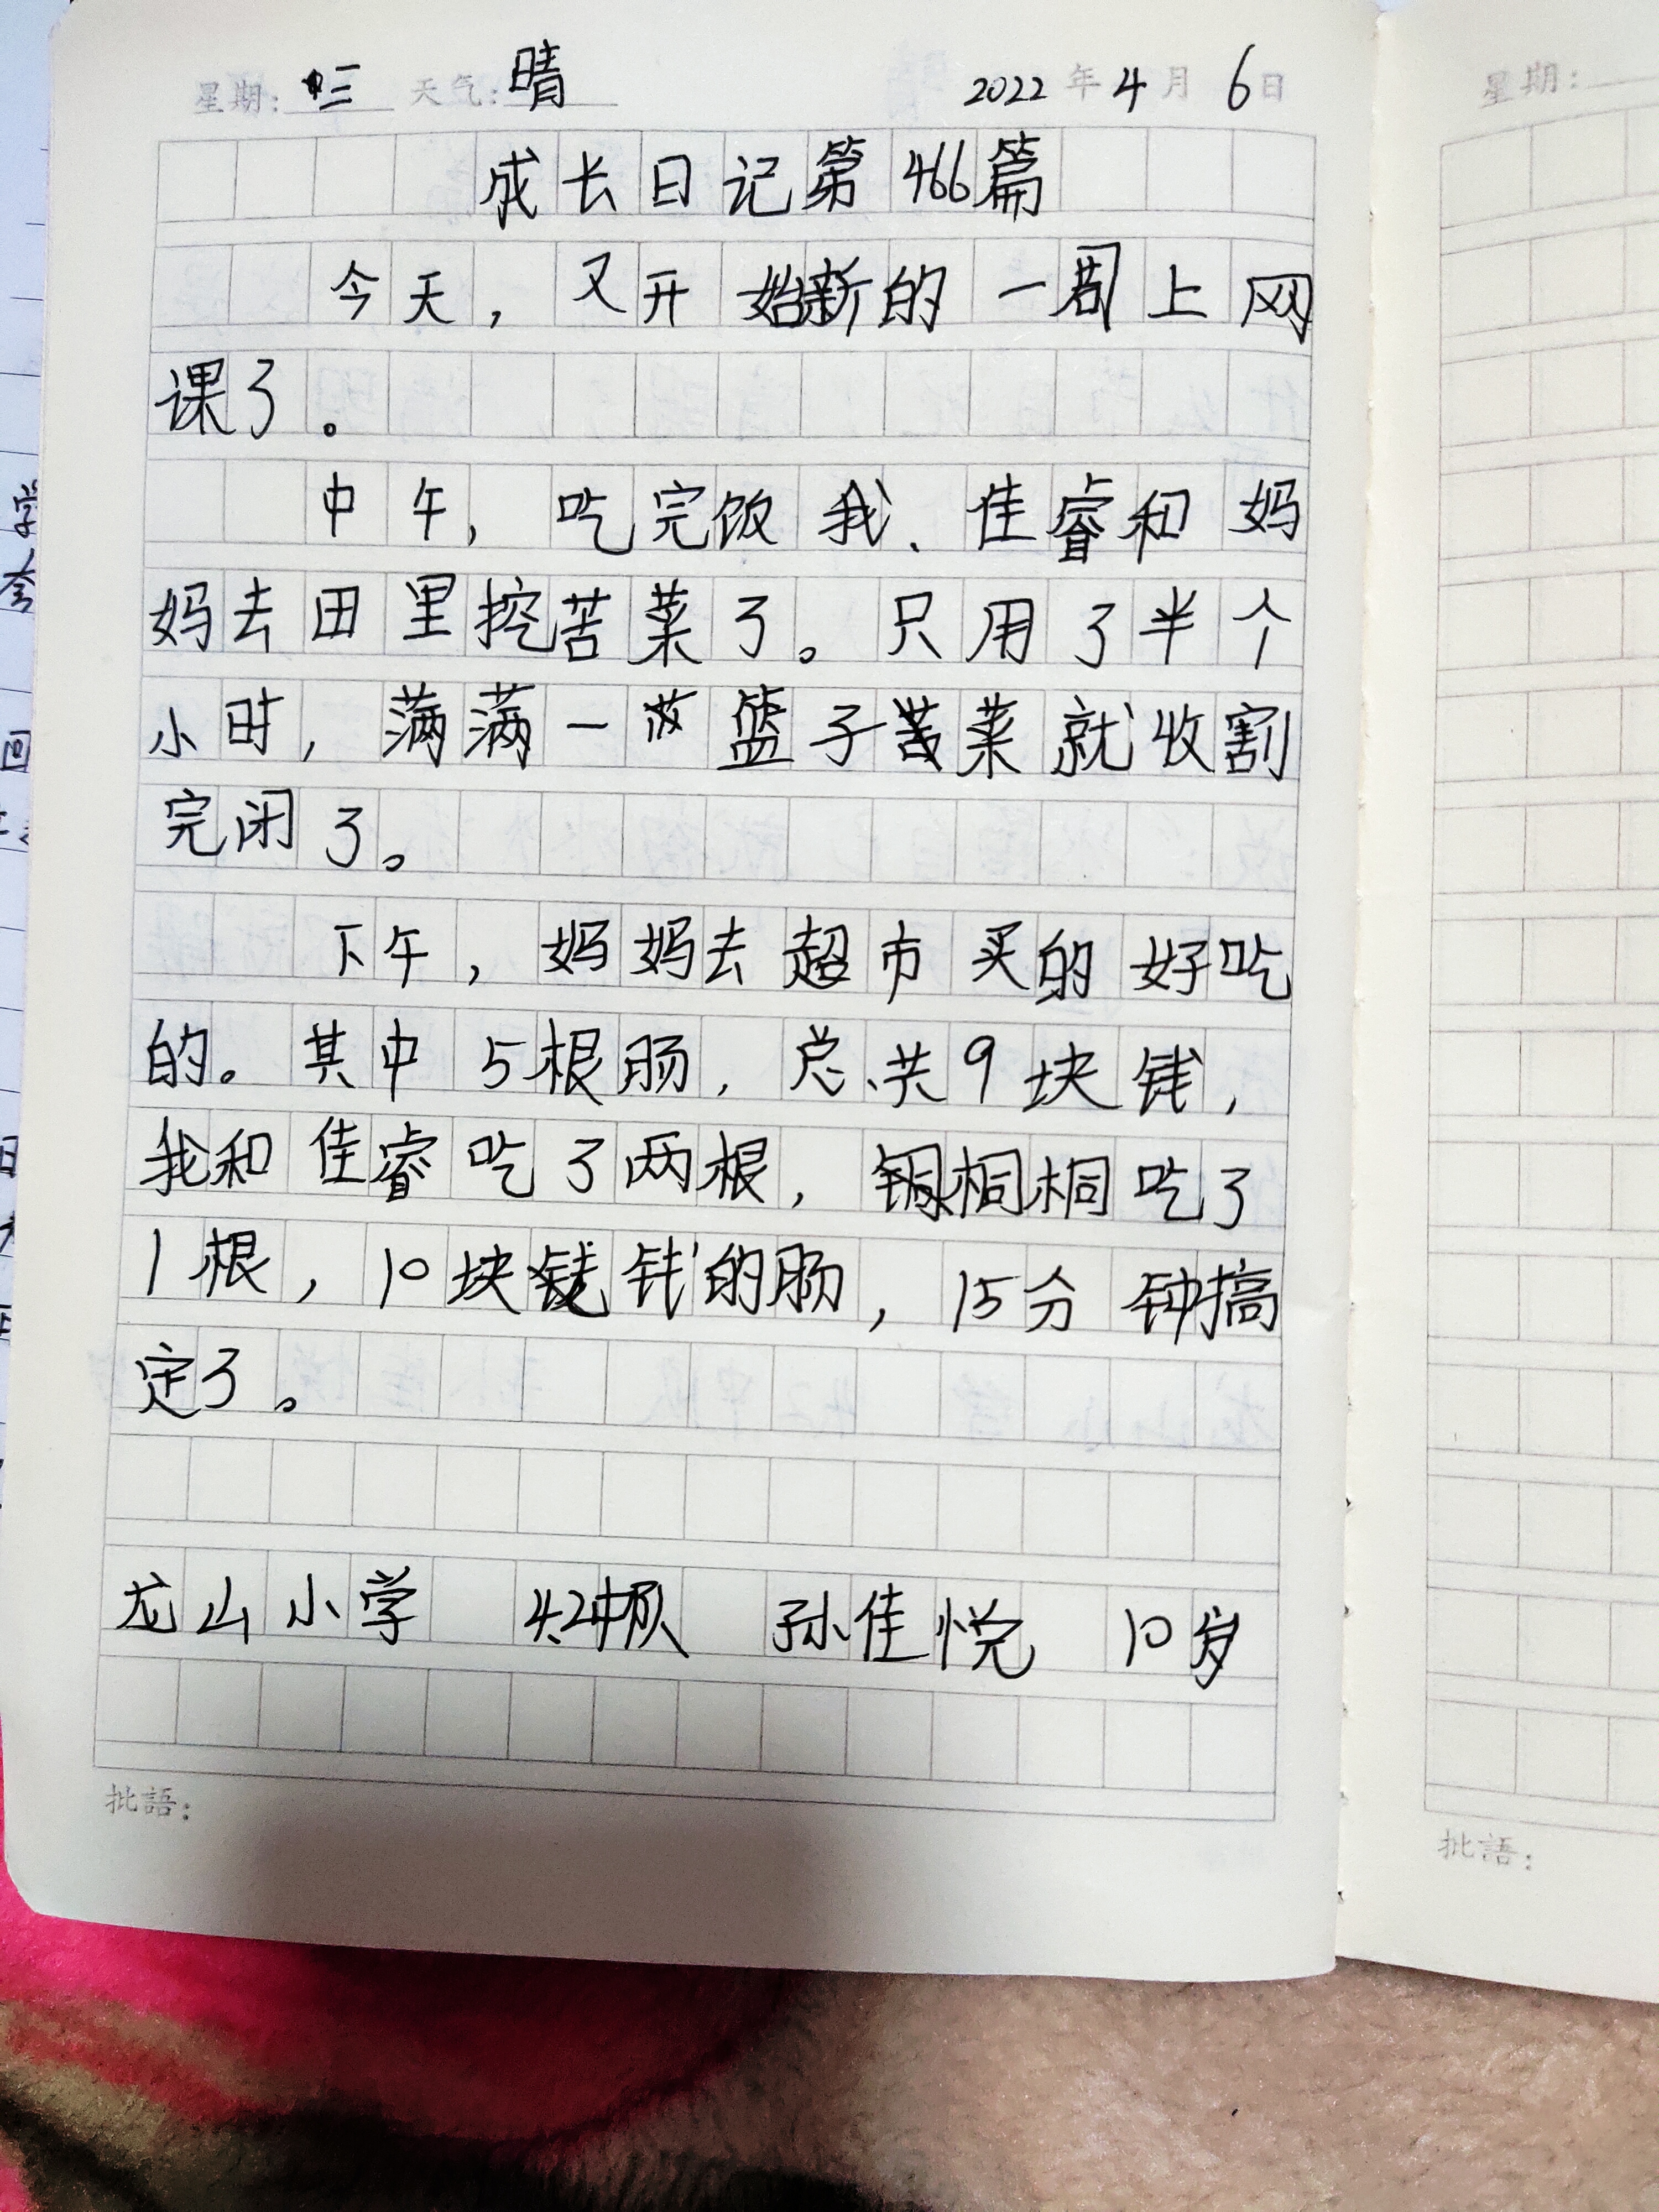 星期: 三 天气: 晴 2022 年 4 月 6 日
星期:
成长日记第466篇
今天，又开始新的一周上网
课了。
中午，吃完饭我、佳睿和妈
妈去田里挖苦菜了。只用了半个
小时，满满一篮子苦菜就收割
完闭了。
下午，妈妈去超市买的好吃
的。其中5根肠，总共9块钱，
我和佳睿吃了两根，桐桐吃了
1根，10块钱的肠，15分钟搞
定了。
龙山小学 4.2中队 孙佳悦 10岁
批語:
批語: